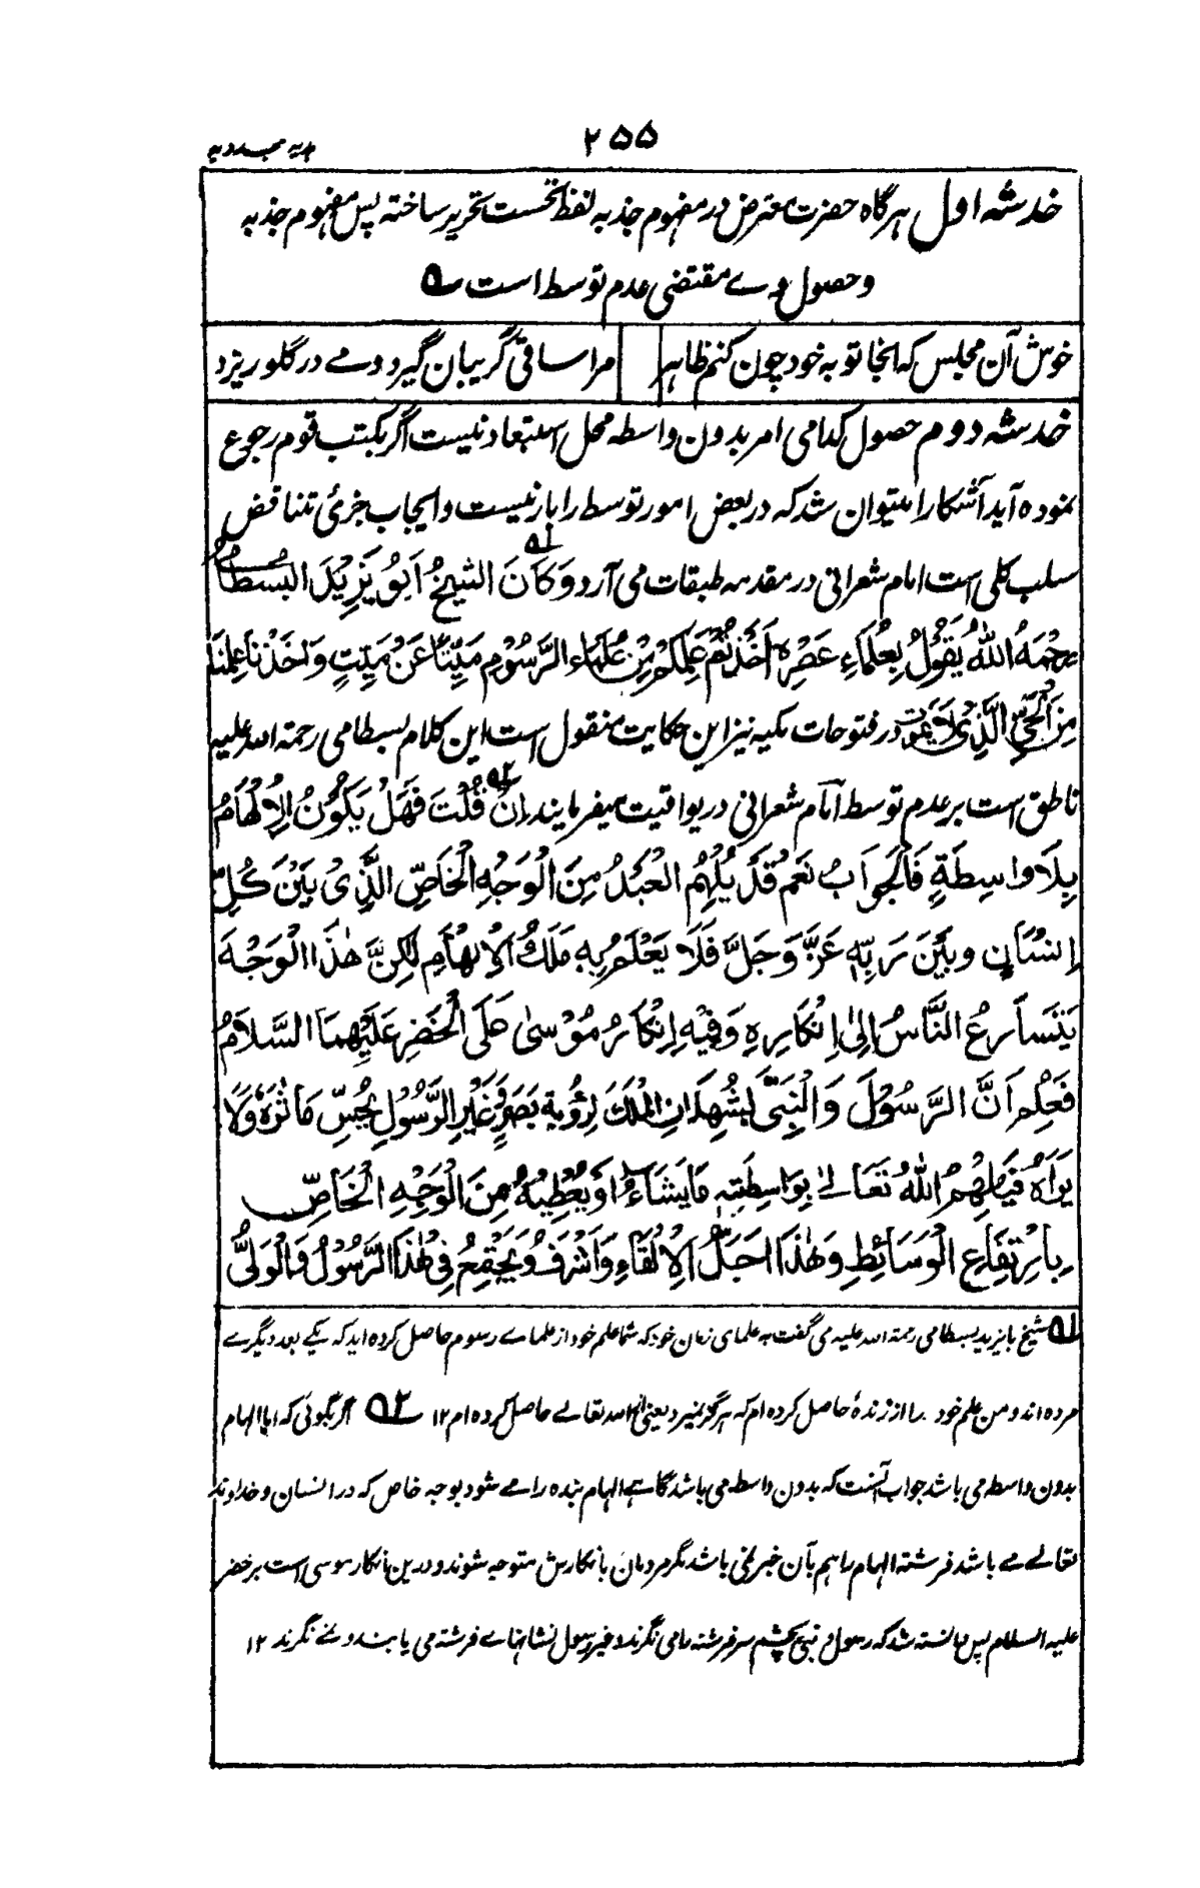 ۲۵۵
ہدیہ مجددیہ
خدشہ اول ہرگاہ حضرت معترض در مفہوم جذبہ لفظ نخست تحریر ساختہ پس مفہوم جذبہ
و حصول وے مقتضی عدم توسط است
خوش آن مجلس کہ آنجا توبہ خود چون کنم ظاہر مرا ساقی گریبان گیرد و مے در گلو ریزد
خدشہ دوم حصول کدامی امر بدون واسطہ محل استبعاد نیست اگر بکتب قوم رجوع
نمودہ آید آشکارا میتوان شد کہ در بعض امور توسط را بار نیست و ایجاب جزئی تناقض
سلب کلی است امام شعرانی در مقدمہ طبقات می آرد وَكَانَ الشيخُ اَبُو يَزِيْدَ البُسطَامُی
رَحْمَهُ اللّٰهُ يَقُوْلُ بِعُلَمَاءِ عَصْرِهٖ اَخَذْتُمْ عِلْمَكُمْ مِنْ عُلَمَاء الرَّسُوْمِ مَيِّتًا عَنْ مَيِّتٍ وَاَخَذْنَا عِلْمَنَا
مِنَ الْحَيِّ الَّذِىْ لَا يَمُوْتُ در فتوحات مکیہ نیز این حکایت منقول است این کلام بسطامی رحمتہ اللہ علیہ
ناطق است بر عدم توسط امام شعرانی در یواقیت میفرمایند اِنْ قُلْتَ فَهَلْ يَكُوْنُ الْاِلْهَامُ
بِلَا وَاسِطَةٍ فَالْجَوَابُ نَعَمْ قَدْ يُلْهَمُ الْعَبْدُ مِنَ الْوَجْهِ الْخَاصِّ الَّذِىْ بَيْنَ كُلِّ
اِنْسَانٍ وَبَيْنَ رَبِّهٖ عَزَّ وَجَلَّ فَلَا يَعْلَمُ بِهٖ مَلَكُ الْاِلْهَامِ لٰكِنَّ هٰذَا الْوَجْهَ
يَتَسَارَعُ النَّاسُ اِلٰى اِنْكَارِهٖ وَفِيْهِ اِنْكَارُ مُوْسٰى عَلَى الْخَضِرِ عَلَيْهِمَا السَّلَامُ
فَعُلِمَ اَنَّ الرَّسُوْلَ وَالنَّبِىَّ يَشْهَدَانِ الْمَلَكَ رُؤْيَةَ بَصَرٍ وَغَيْرِ الرَّسُوْلِ يُحِسُّ مَا اَثَرَهٗ وَلَا
يَرَاهُ فَيُلْهِمُ اللّٰهُ تَعَالٰى بِوَاسِطَتِهٖ مَا يَشَاءُ اَوْ يُعْطِيْهِ مِنَ الْوَجْهِ الْخَاصِّ
بِارْتِفَاعِ الْوَسَائِطِ وَهٰذَا اَجَلُّ الْاِلْقَاءِ وَاَشْرَفُ وَيَجْتَمِعُ فِىْ هٰذَا الرَّسُوْلُ وَالْوَلِىُّ
۱ شیخ بایزید بسطامی رحمتہ اللہ علیہ می گفت بہ علمای زمان خود کہ شما علم خود از علماے رسوم حاصل کردہ اید کہ یکے بعد دیگرے
مردہ اند و من علم خود را از زندۂ حاصل کردہ ام کہ ہرگز نمیرد یعنی از اللہ تعالے حاصل کردہ ام ۱۲ ۲ اگر بگوئی کہ آیا الہام
بدون واسطہ می باشد جواب آنست کہ بدون واسطہ می باشد گاہے الہام بندہ را مے شود بوجہ خاص کہ در انسان و خداوند
تعالے مے باشد فرشتہ الہام را ہم بآن خبر نمی باشد مگر مردمان بانکارش متوجہ شوند و درین انکار موسی است بر خضر
علیہ السلام پس دانستہ شد کہ رسول و نبی بچشم سر فرشتہ را می نگرند و غیر رسول نشانہاے فرشتہ می یابند و نمے نگرند ۱۲